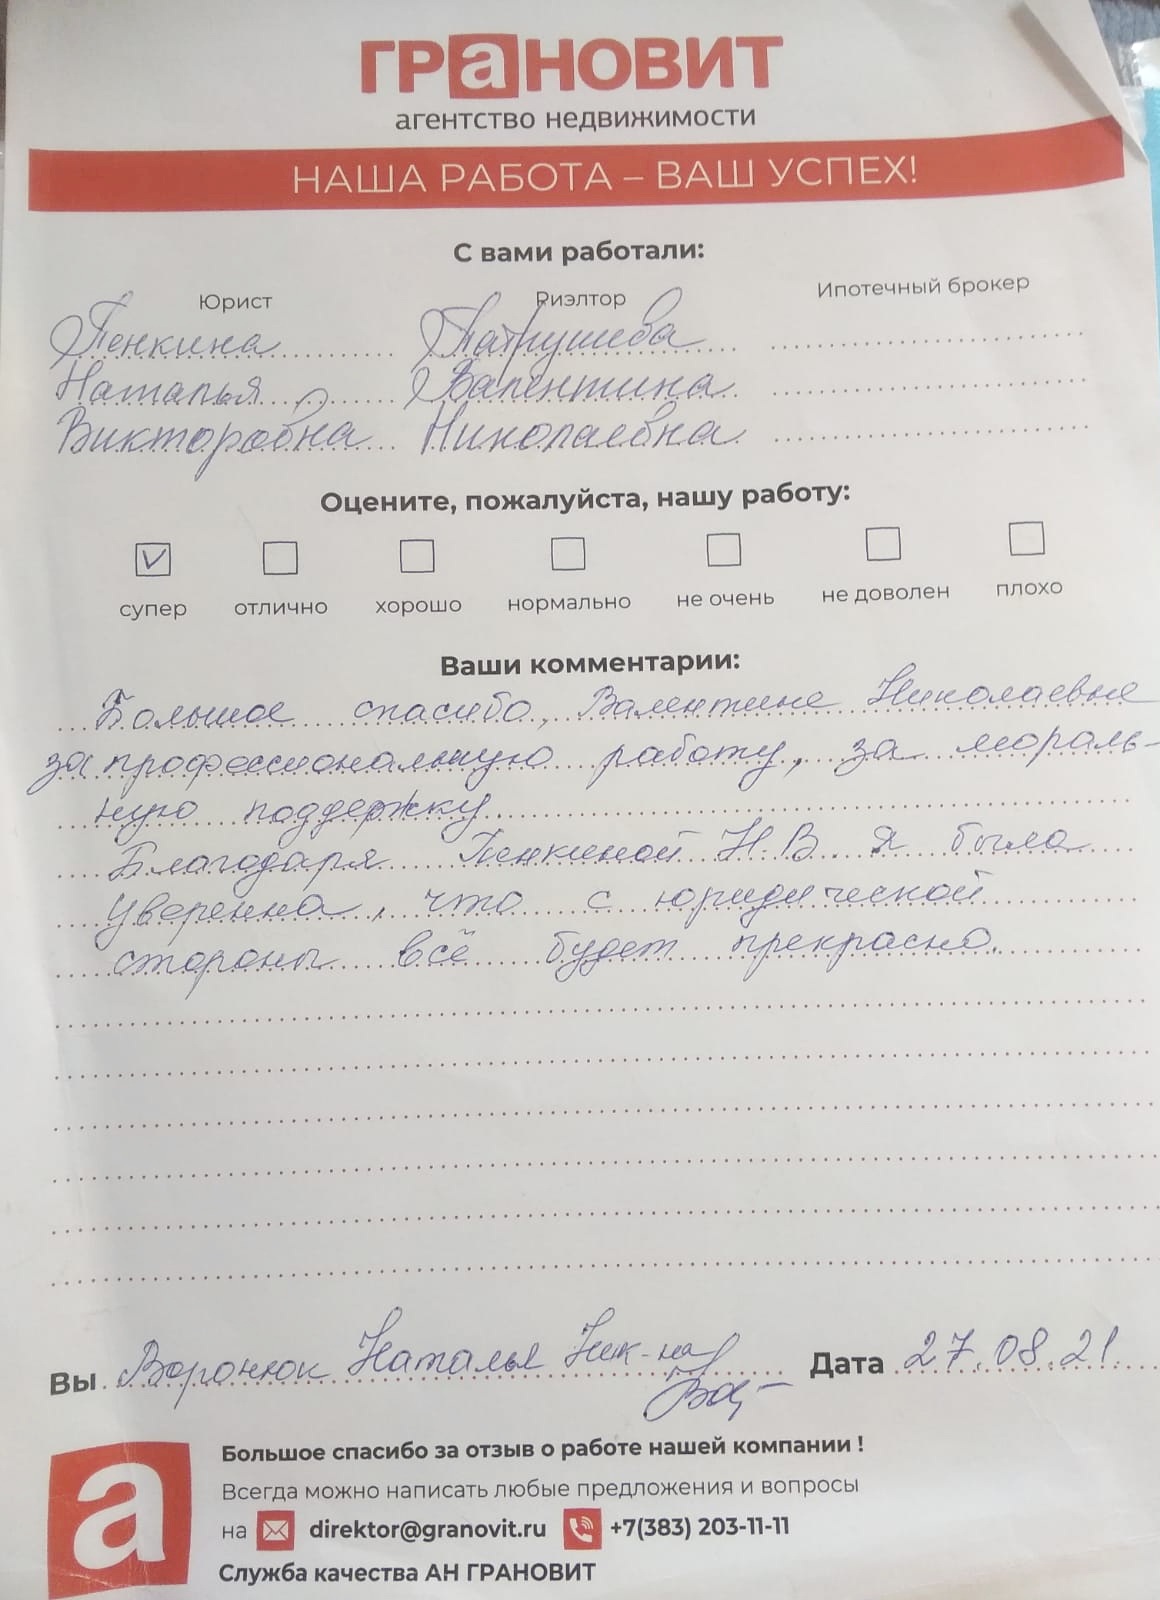 ГРаНОВИТ
агентство недвижимости
НАША РАБОТА – ВАШ УСПЕХ!
С вами работали:
Юрист Риэлтор Ипотечный брокер
Пенкина Патрушева
Наталья Валентина
Викторовна Николаевна
Оцените, пожалуйста, нашу работу:
супер отлично хорошо нормально не очень не доволен плохо
Ваши комментарии:
Большое спасибо, Валентине Николаевне
за профессиональную работу, за мораль-
ную поддержку.
Благодаря Пенкиной Н.В. я была
уверенна, что с юридической
стороны всё будет прекрасно.
Вы Воронюк Наталья Ник-на Дата 27.08.21
а
Большое спасибо за отзыв о работе нашей компании !
Всегда можно написать любые предложения и вопросы
на direktor@granovit.ru +7(383) 203-11-11
Служба качества АН ГРАНОВИТ